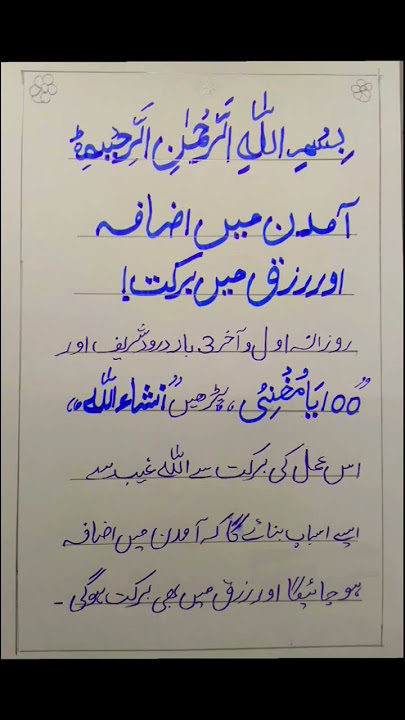 بِسْمِ اللّٰهِ الرَّحْمٰنِ الرَّحِيْمِ
آمدن میں اضافہ
اور رزق میں برکت!
روزانہ اول و آخر 3 بار درود شریف اور
"100 یَا مُغْنِیُ" پڑھیں "انشاء اللّٰه"
اس عمل کی برکت سے اللّٰه غیب سے
ایسے اسباب بنائے گا کہ آمدن میں اضافہ
ہو جائیگا اور رزق میں بھی برکت ہوگی۔